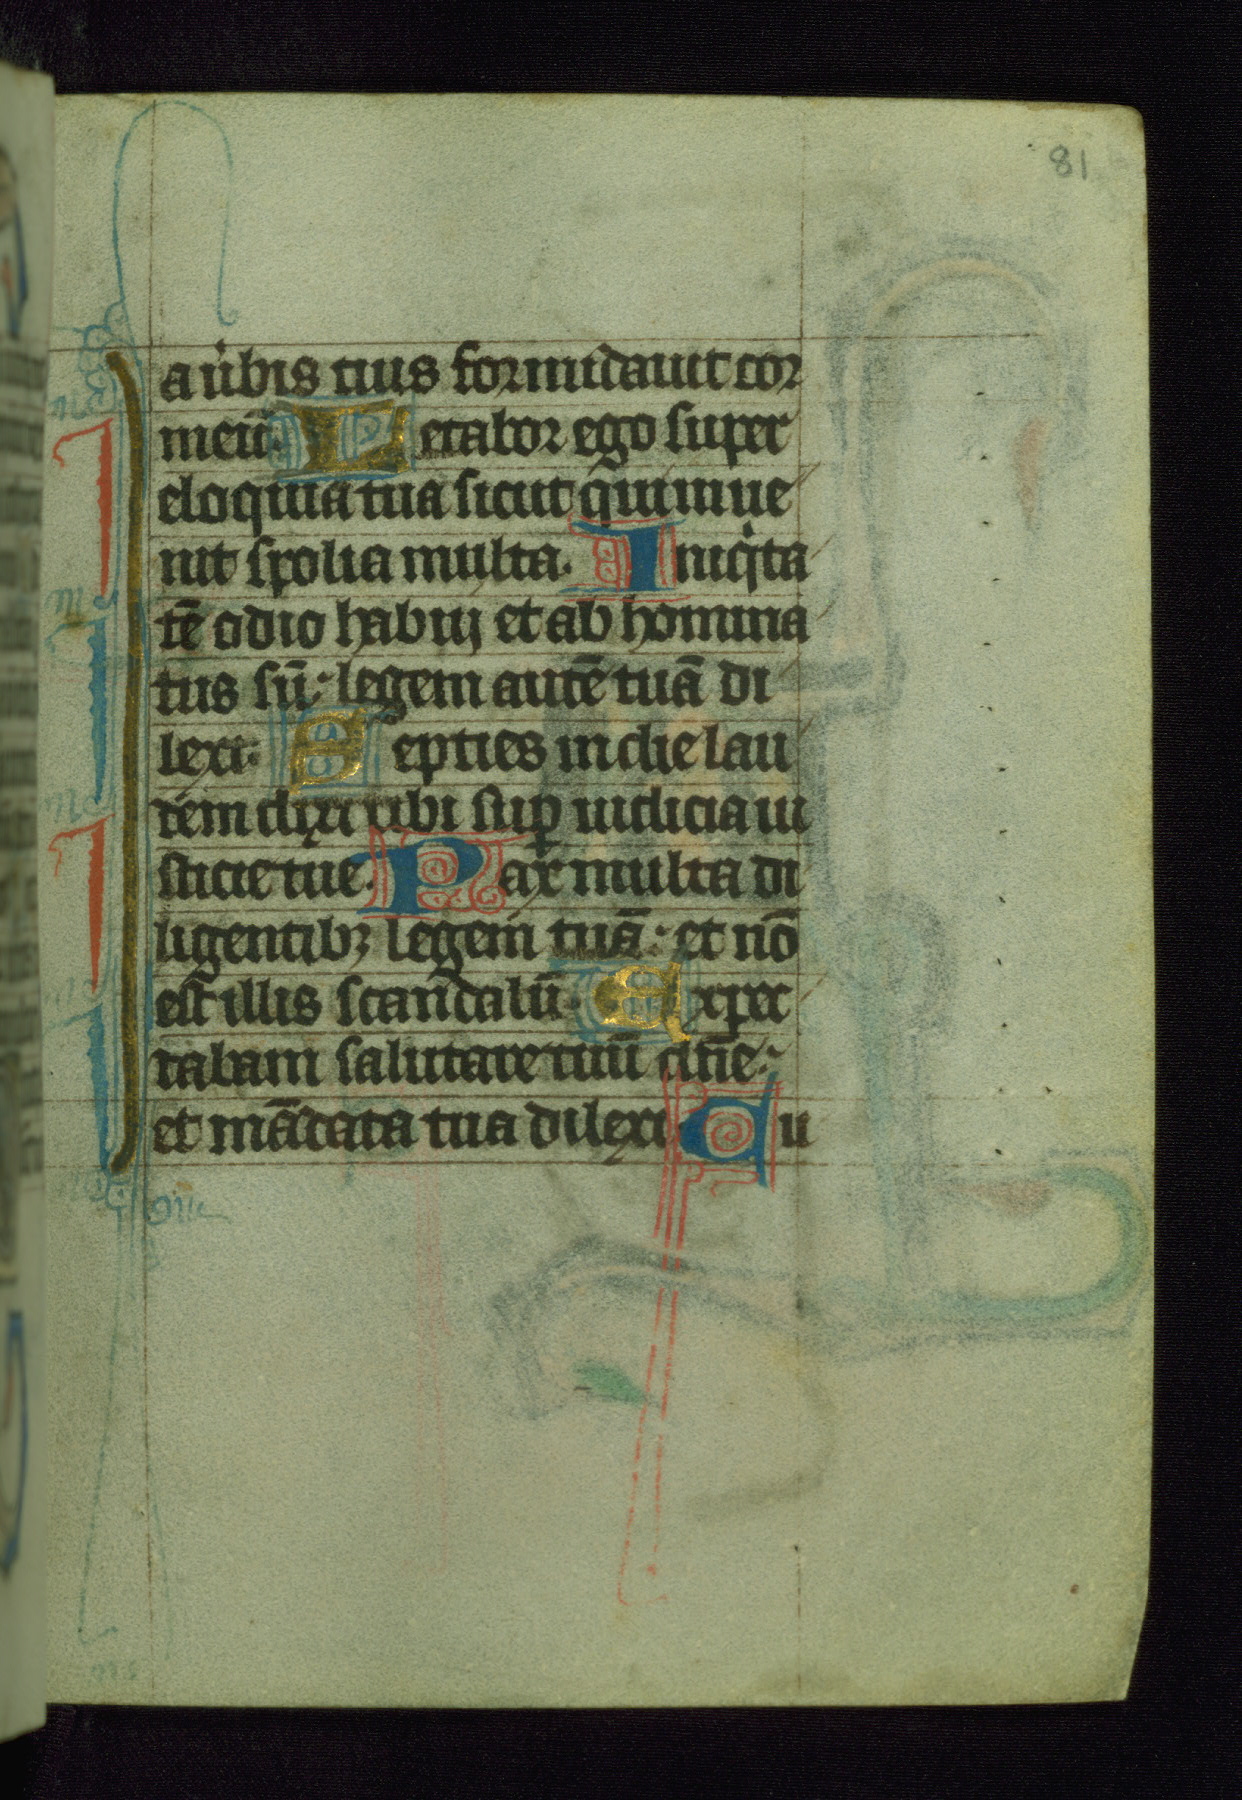 81
a ūbis tuis formidauit cor
meū. Letabor ego super
eloquia tua sicut qui inue
nit spolia multa. Iniqͥta
tē odio habui et abhomina
tus sū: legem autē tuā di
lexi. Septies in die lau
dem dixi tibi suꝑ iudicia iu
sticie tue. Pax multa di
ligentibꝫ legem tuā: et nō
est illis scandalū. Expec
tabam salutare tuū dn̄e:
et mādata tua dilexi Cu